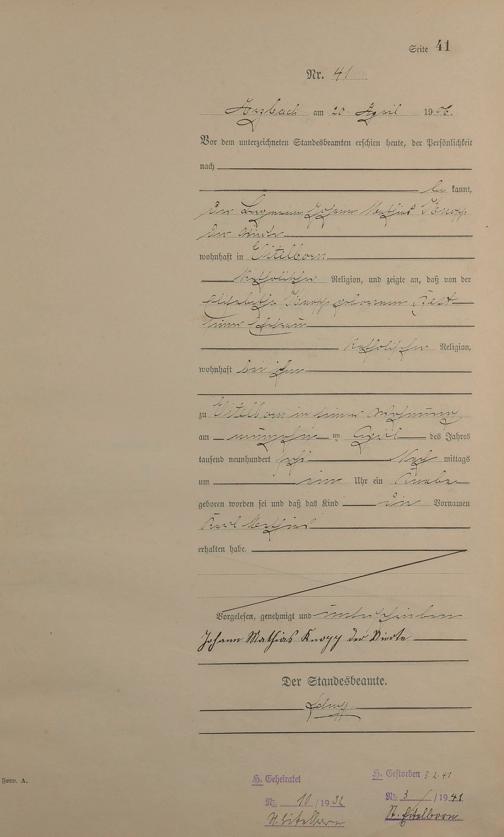 Seite 41
Nr. 41
Arzbach am 20 April 1906.
Vor dem unterzeichneten Standesbeamten erschien heute, der Persönlichkeit
nach
be kannt,
der Bergmann Johann Mathias Knopp
der Vierte
wohnhaft in Eitelborn
katholischer Religion, und zeigte an, daß von der
Elisabetha Knopp geborenen
seiner Ehefrau
katholischer Religion,
wohnhaft bei ihm
zu Eitelborn in seiner Wohnung
am am April des Jahres
tausend neunhundert sechs Nach mittags
um ein Uhr ein Knabe
geboren worden sei und daß das Kind die Vornamen
Karl Mathias
erhalten habe.
Vorgelesen, genehmigt und unterschrieben
Johann Mathias Knopp der Vierte
Der Standesbeamte.
Form. A.
H. Geheiratet
Nr. 10 / 1932
St. Eitelborn
H. Gestorben 3.2.41
Nr. 3 / 1941
St. Eitelborn